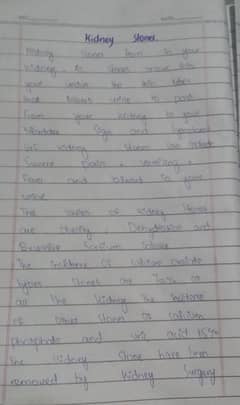 Kidney Stones.
Kidney stones form in your
kidney. As stones move into
your ureter the thin tube
that allows urine to pass
from your kidneys to your
bladder Sign and
of kidney stones can include
Severe pain, vomiting,
Fever and blood in your
urine
The causes of kidney Stones
are obesity, Dehydration and
Excessive Sodium intake
The incidence of calcium oxalate
types stones are 70% of
all the kidney the incidence
of other stones is calcium
phosphate and uric acid 15%
the kidney Stone have been
removed by kidney Surgery